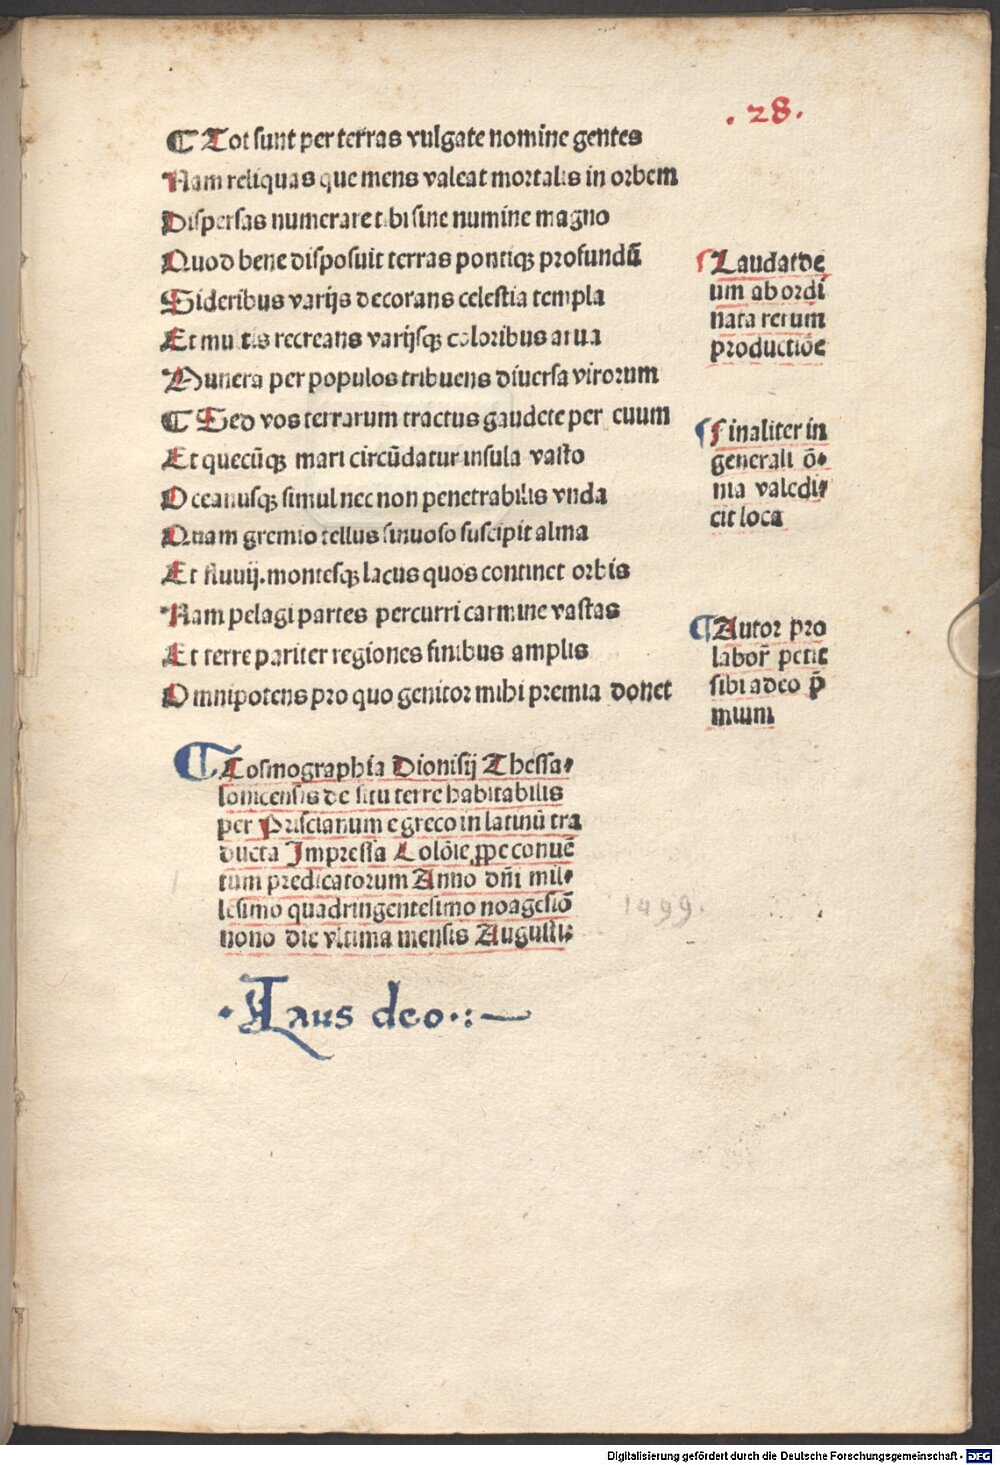 . 28.
¶ Tot sunt per terras vulgate nomine gentes
Nam reliquas que mens valeat mortalis in orbem
Dispersas numerare tibi sine numine magno
Quod bene disposuit terras pontiqꝫ profundū
Sideribus varijs decorans celestia templa
Et multis recreans varijsqꝫ coloribus arua
Munera per populos tribuens diuersa virorum
¶ Sed vos terrarum tractus gaudete per euum
Et quecūqꝫ mari circūdatur insula vasto
Oceanusqꝫ simul nec non penetrabilis vnda
Quam gremio tellus sinuoso suscipit alma
Et fluuij. montesqꝫ lacus quos continet orbis
Nam pelagi partes percurri carmine vastas
Et terre pariter regiones finibus amplis
Omnipotens pro quo genitor mihi premia donet
¶ Laudat de
um ab ordi
nata rerum
productiōe
¶ Finaliter in
generali ō⸗
nia valedi⸗
cit loca
¶ Autor pro
labor̄ petit
sibi a deo p̄
mium
¶ Cosmographia Dionisij Thessa⸗
lonicensis de situ terre habitabilis
per Priscianum e greco in latinū tra
ducta Impressa Colōie ꝓpe conuē
tum predicatorum Anno dn̄i mil⸗
lesimo quadringentesimo noagesiō
nono die vltima mensis Augusti:
1499.
· Laus deo ·:—
Digitalisierung gefördert durch die Deutsche Forschungsgemeinschaft - DFG